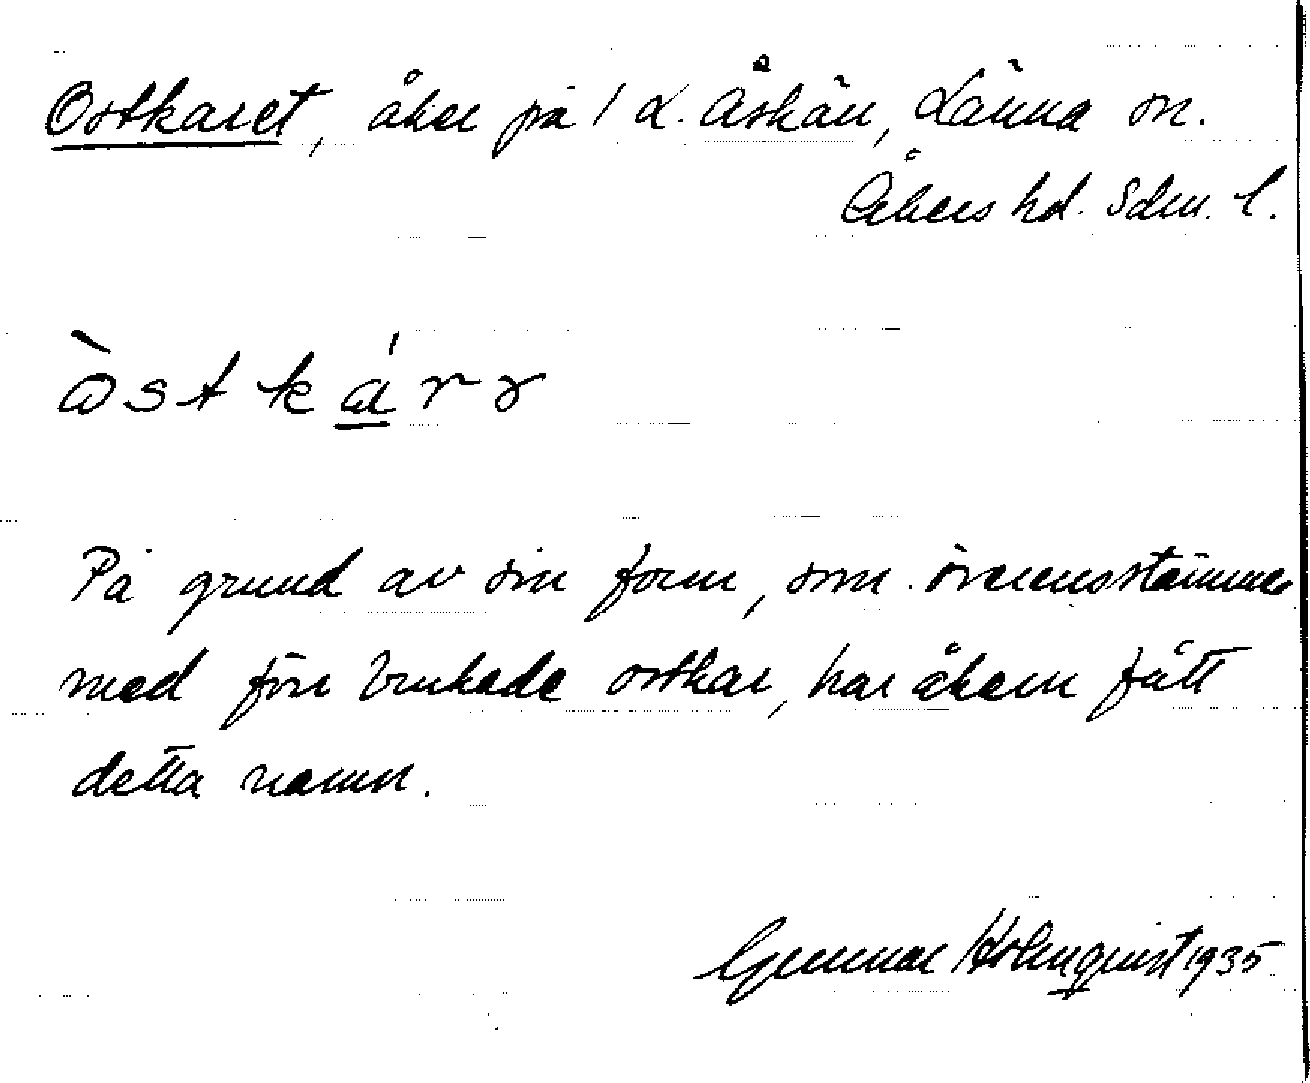 Ostkaret, åker på 1 L. Åskän, Länna sn.
Åkers hd. Sdm. l.
òstkár
På grund av sin form, som överensstämmer
med förr brukade ostkar, har åkern fått
detta namn.
Gunnar Holmquist 1935